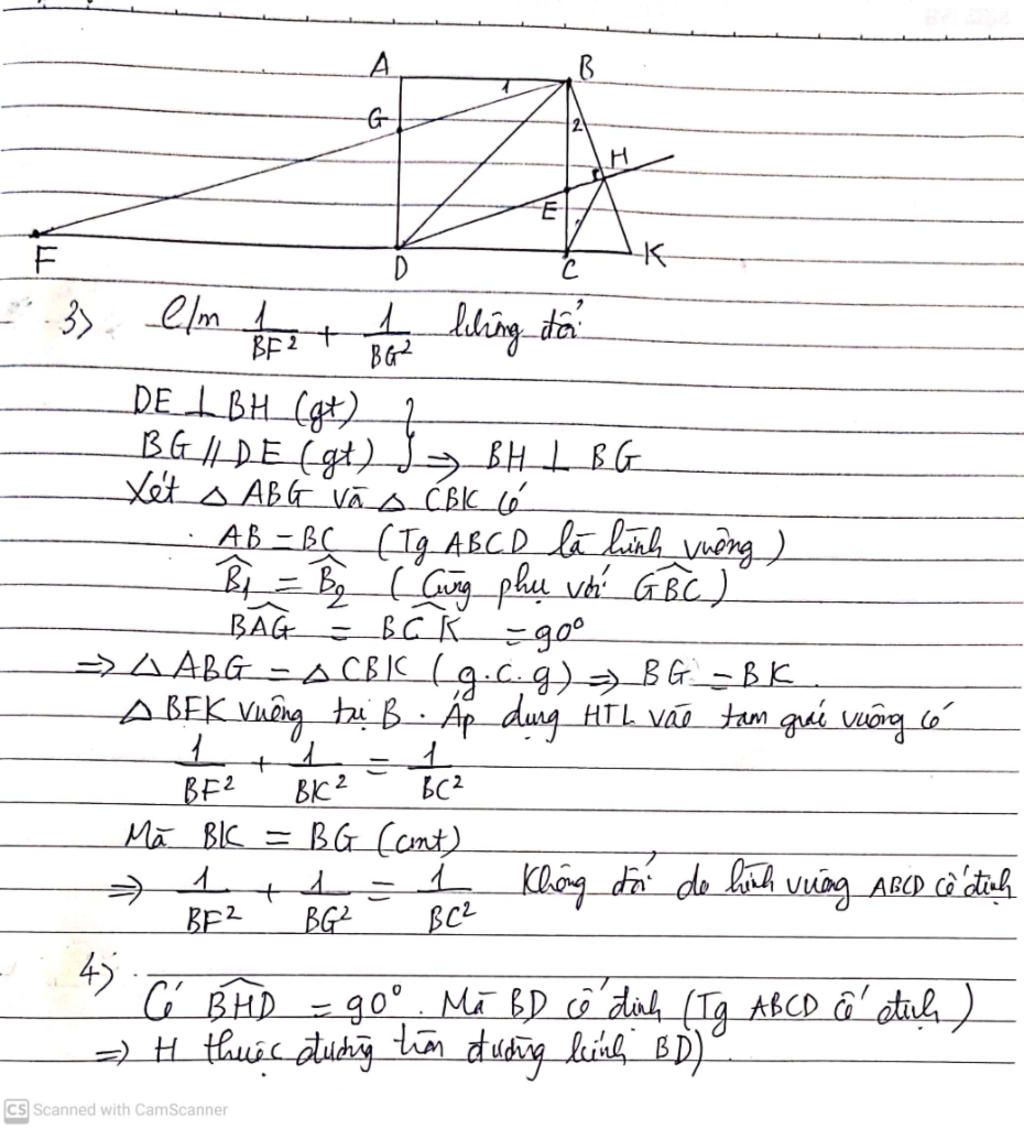 A B
G 1 2
H
E
F D C K
3) C/m 1/BF² + 1/BG² không đổi
DE ⊥ BH (gt)
BG // DE (gt) } ⇒ BH ⊥ BG
Xét △ ABG và △ CBK có
AB = BC (Tg ABCD là hình vuông)
B̂₁ = B̂₂ (Cùng phụ với GBC^)
BAG^ = BCK^ = 90°
⇒ △ ABG = △ CBK (g.c.g) ⇒ BG = BK.
△ BFK vuông tại B. Áp dụng HTL vào tam giác vuông có
1/BF² + 1/BK² = 1/BC²
Mà BK = BG (cmt)
⇒ 1/BF² + 1/BG² = 1/BC² Không đổi do hình vuông ABCD cố định
4)
Có BHD^ = 90°. Mà BD cố định (Tg ABCD cố định)
⇒ H thuộc đường tròn đường kính BD)
CS Scanned with CamScanner